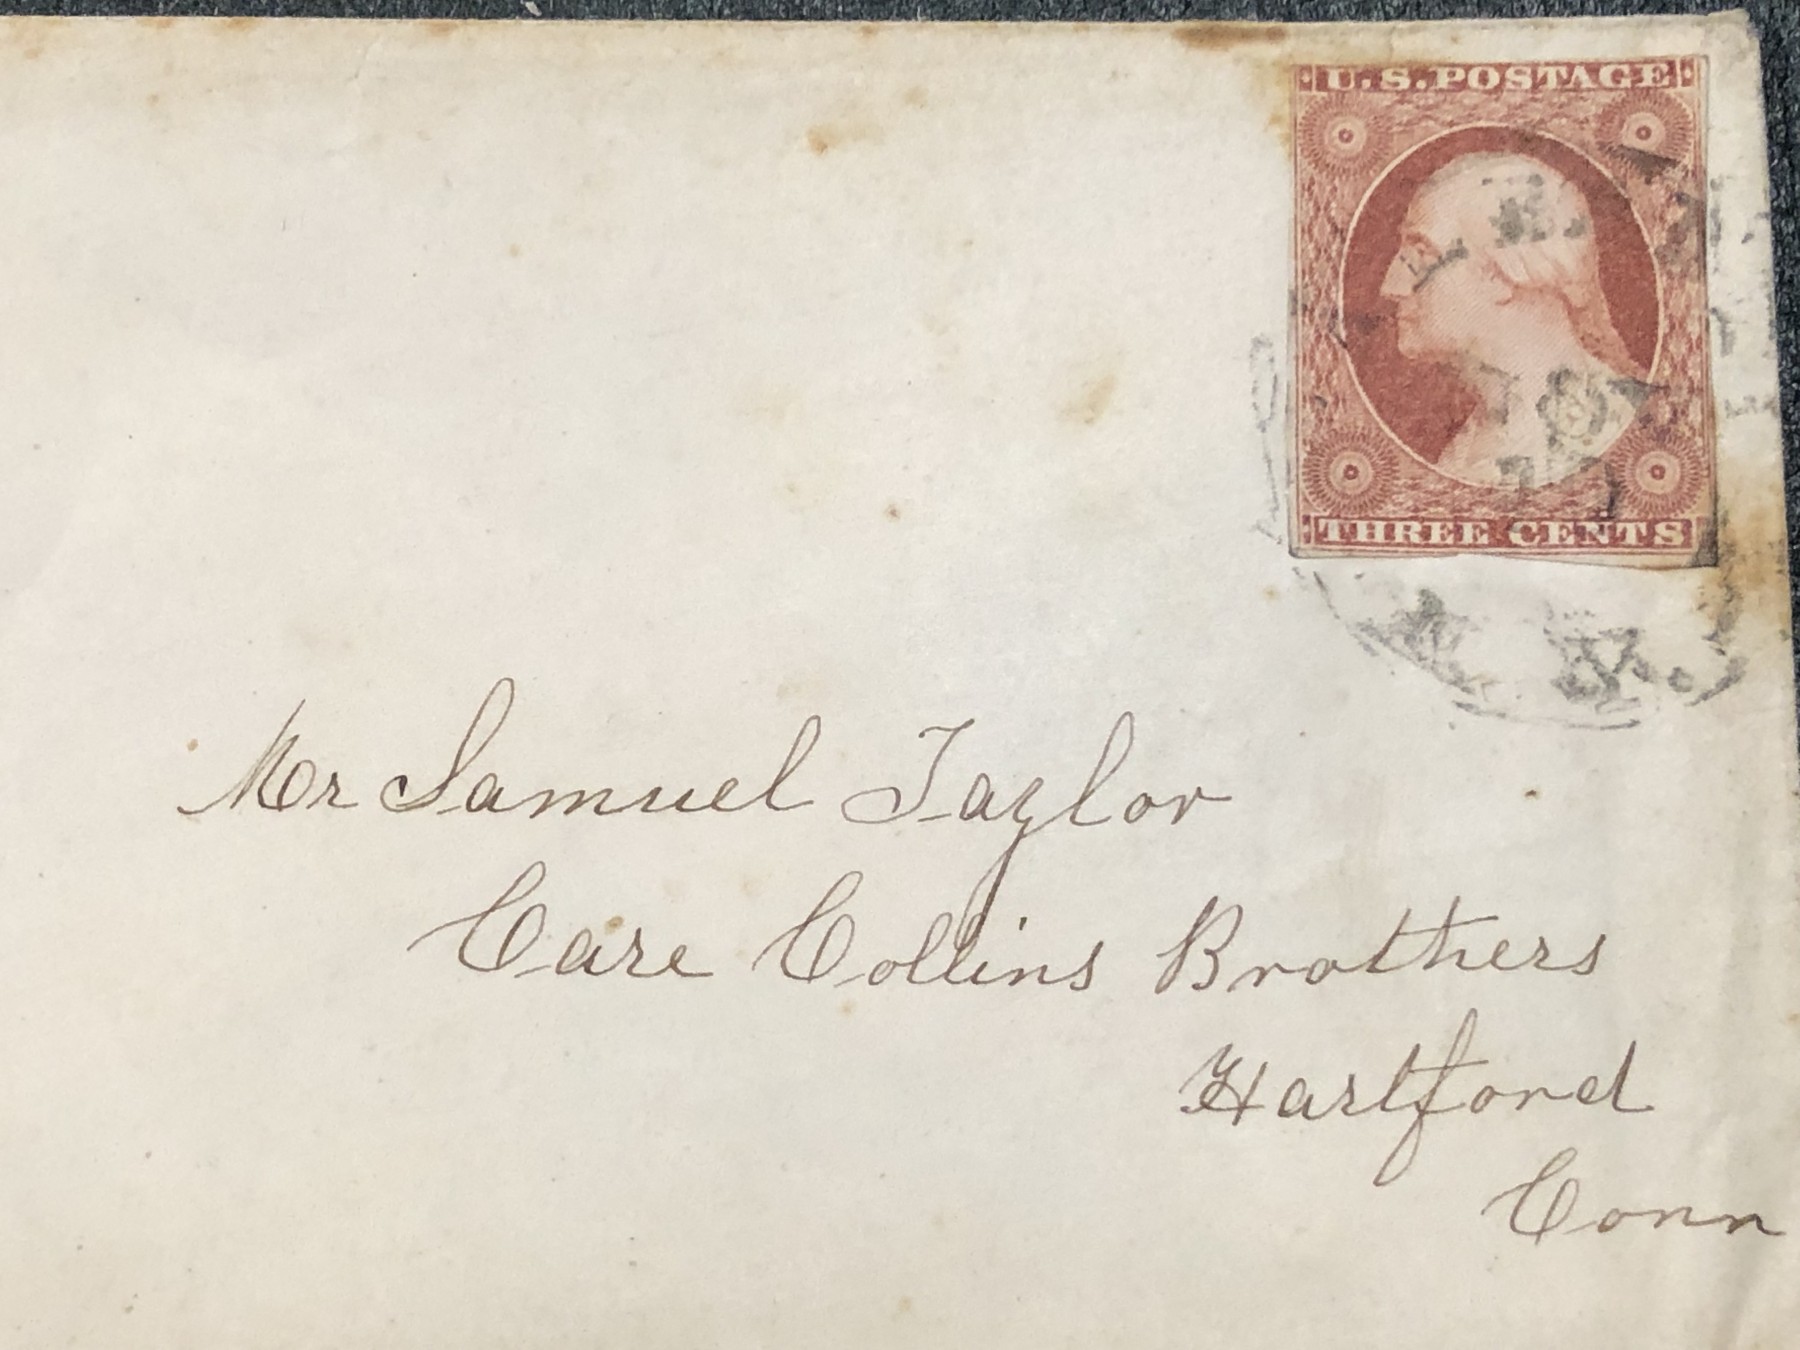 U.S.POSTAGE
THREE CENTS
Mr Samuel Taylor
Care Collins Brothers
Hartford
Conn